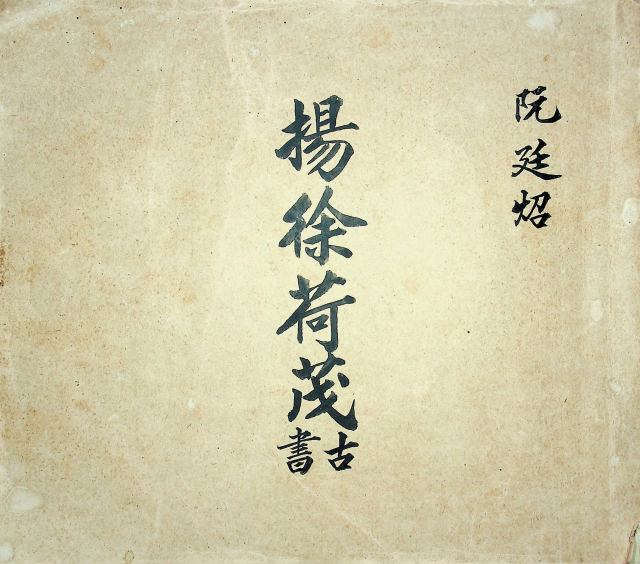 阮廷炤
揚徐荷茂
古書